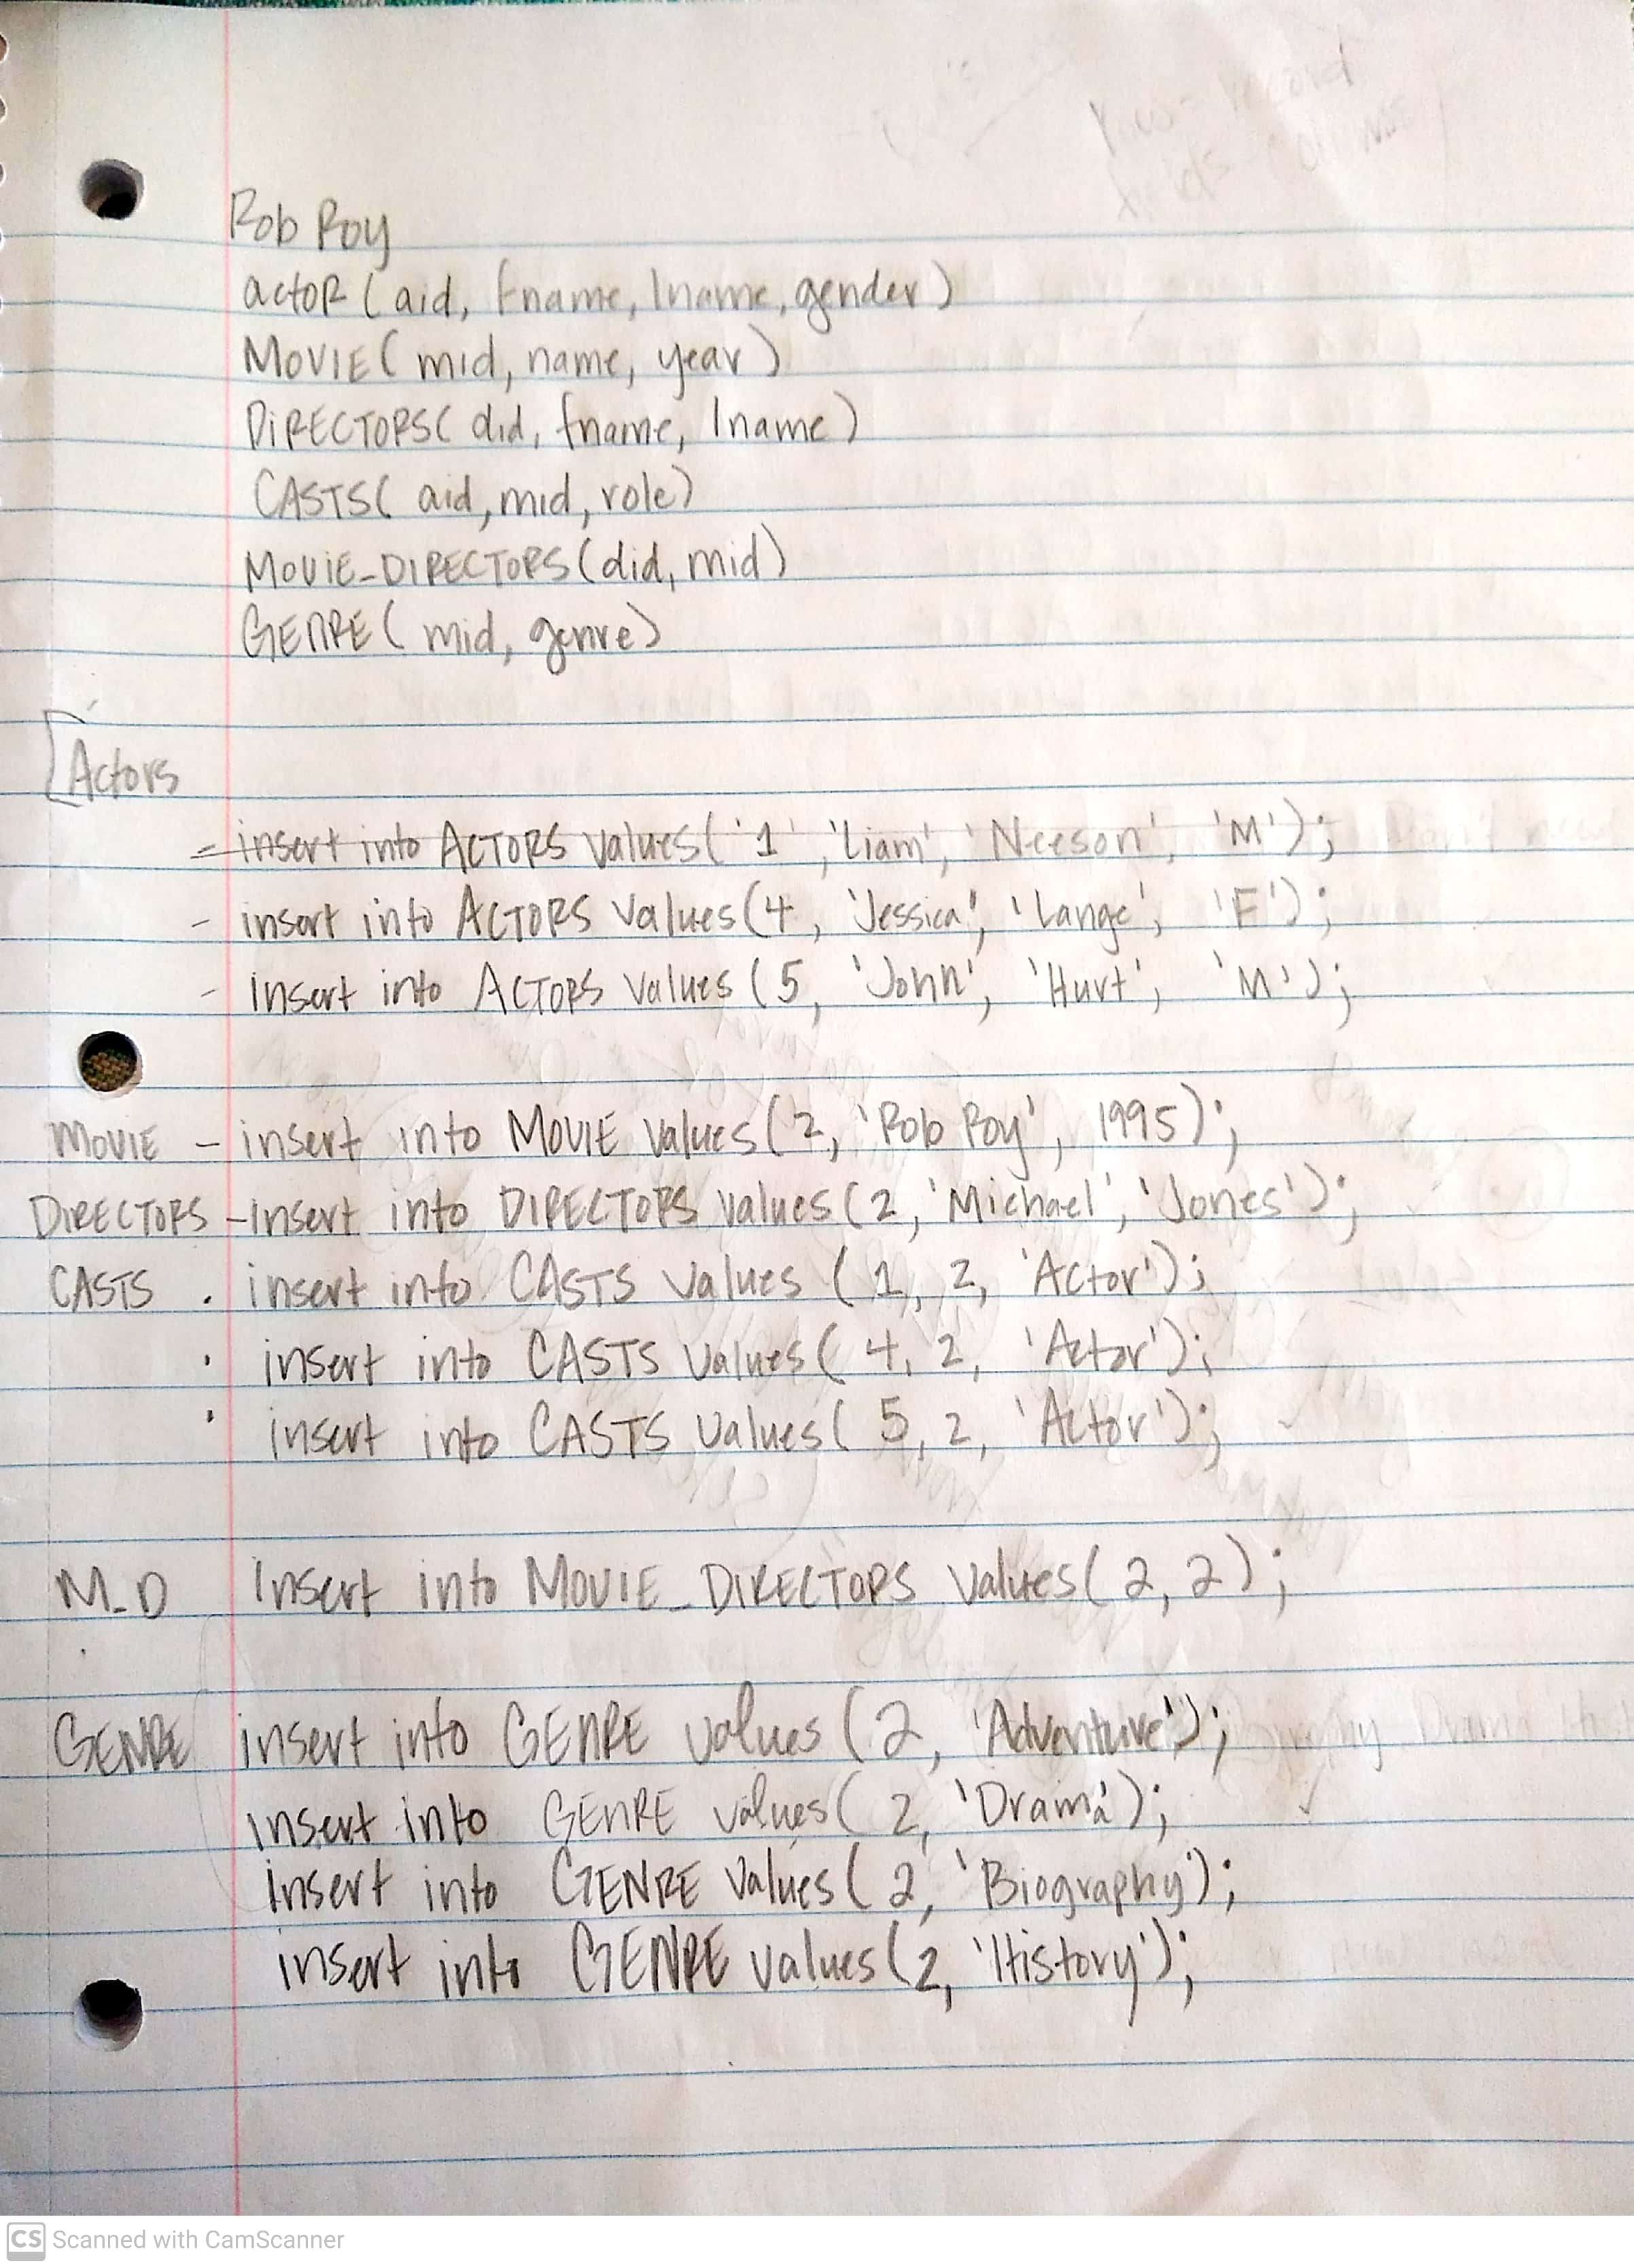 Rob Roy
actoR (aid, fname, lname, gender)
MOVIE( mid, name, year)
DIRECTORS( did, fname, lname)
CASTS( aid, mid, role)
MOVIE_DIRECTORS(did, mid)
GENRE( mid, genre)
[Actors
- insert into ACTORS values('1', 'Liam', 'Neeson', 'M');
- insert into ACTORS values(4, 'Jessica', 'Lange', 'F');
- Insert into ACTORS values (5, 'John', 'Hurt', 'M');
MOVIE - insert into MOVIE values(2, 'Rob Roy', 1995);
DIRECTORS - Insert into DIRECTORS values(2, 'Michael', 'Jones');
CASTS . insert into CASTS values (1, 2, 'Actor');
. insert into CASTS values( 4, 2, 'Actor');
. insert into CASTS values( 5, 2, 'Actor');
M_D Insert into MOVIE_DIRECTORS values(2, 2);
GENRE insert into GENRE values (2, 'Adventure');
Insert into GENRE values( 2, 'Drama');
Insert into GENRE values( 2, 'Biography');
insert into GENRE values(2, 'History');
CS Scanned with CamScanner